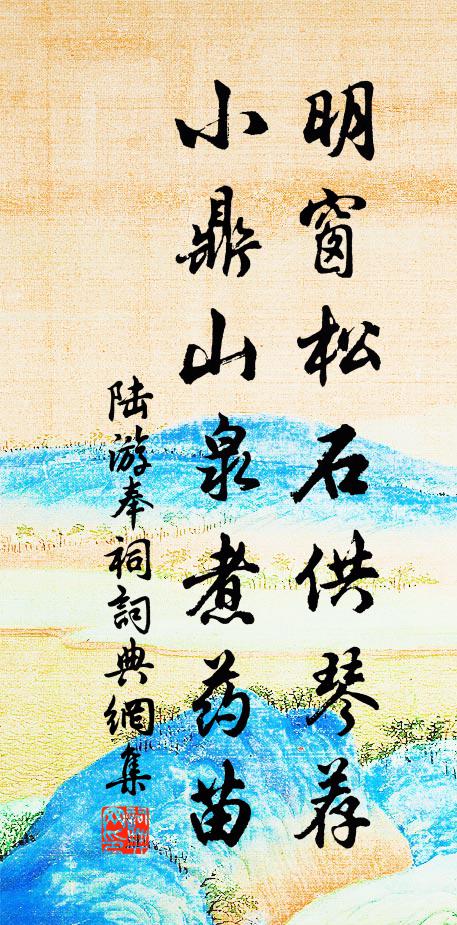 明窗松石供琴荐
小鼎山泉煮药苗
陆游奉祠詞典網集